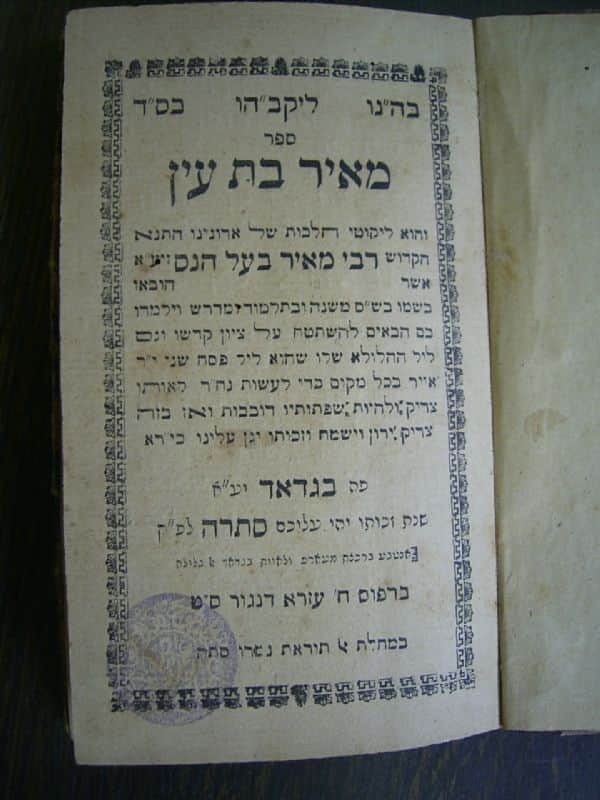 בה״נו ליקב״הו בס״ד
ספר
מאיר בת עין
והוא ליקוטי הלכות של אדונינו התנא
הקדוש רבי מאיר בעל הנס זיע״א
אשר הובאו
בשמו בש״ס משנה ובתלמוד ומדרש וילמדו
בם הבאים להשתטח על ציון קדשו וגם
ליל ההלולא שלו שהוא ליל פסח שני י״ד
אייר בכל מקום כדי לעשות נח״ר לאותו
צדיק ולהיות שפתותיו דובבות ואז בזה
צדיק ירון וישמח וזכותו יגן עלינו כי״רא
פה בגדאד יע״א
שנת זכותו יהי עליכם סתרה לפ״ק
בדפוס ח׳ עזרא דנגור ס״ט
במחלת